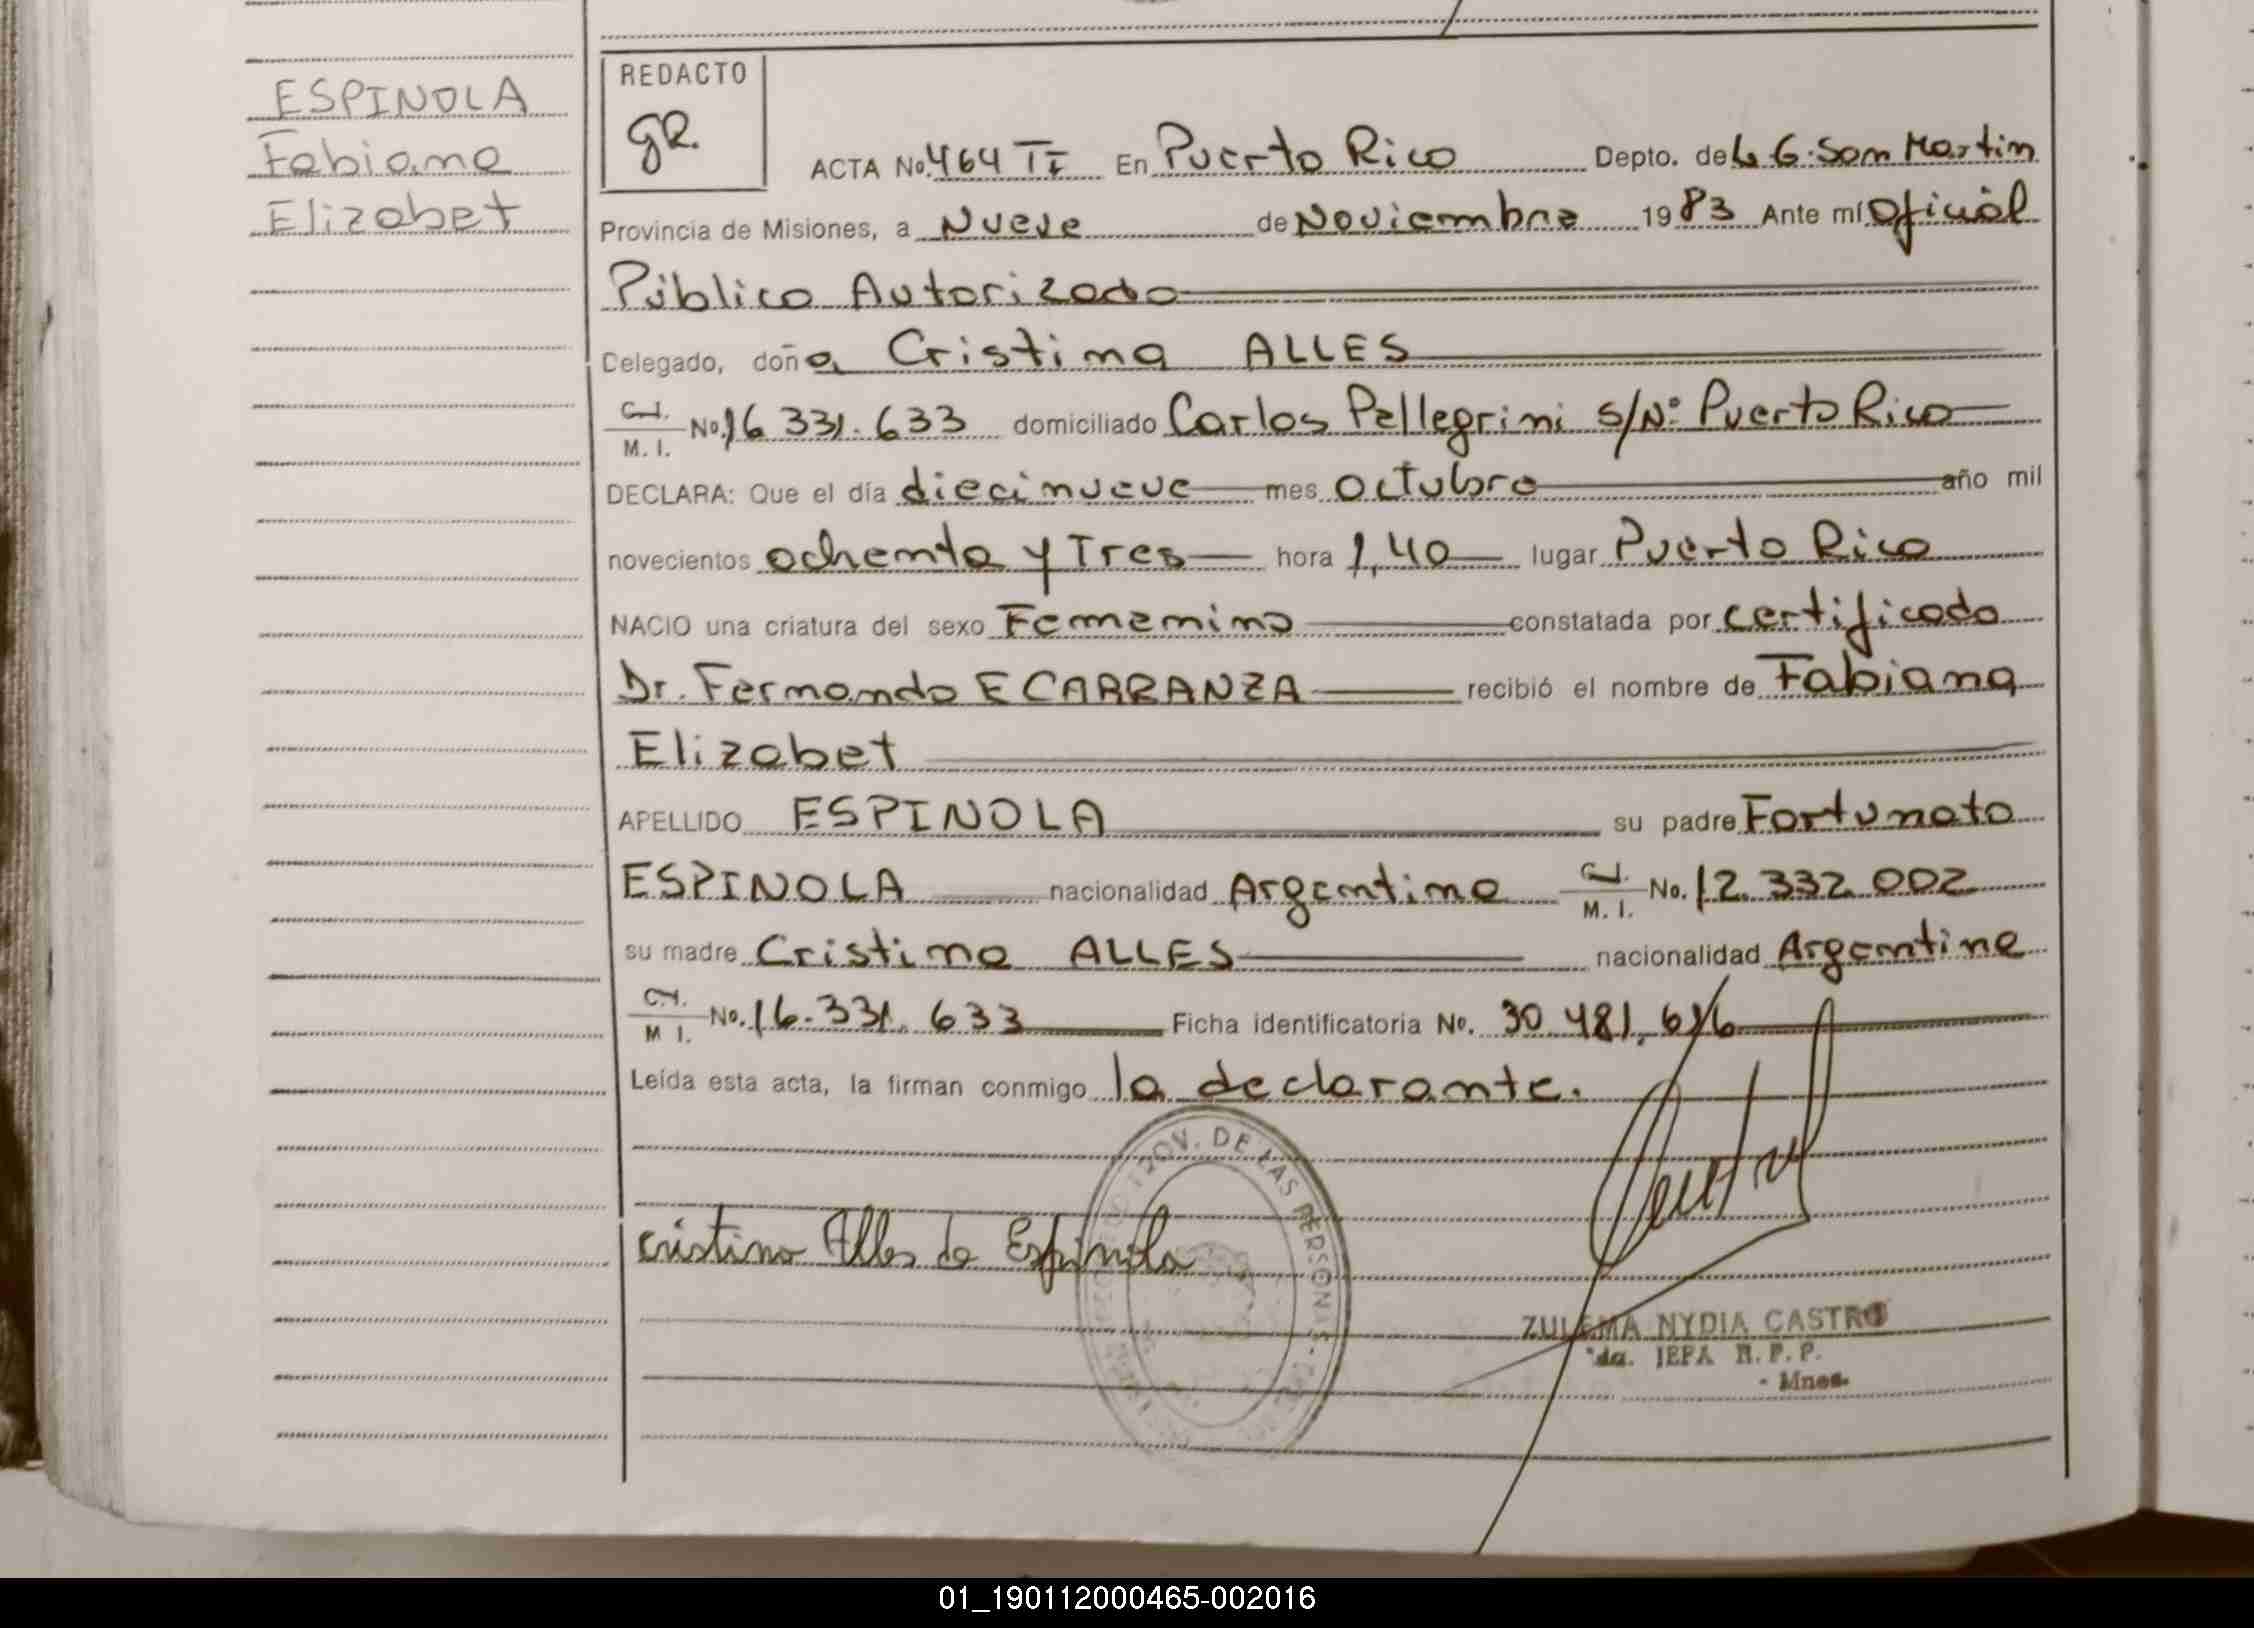 ESPINOLA
Fabiana
Elizabet
REDACTO
gR.
ACTA No. 464 TI En Puerto Rico Depto. de L G. San Martin
Provincia de Misiones, a Nueve de Noviembre 1983 Ante mí Oficial
Público Autorizado
Delegado, doña Cristina ALLES
C.I. M. I. No. 16 331.633 domiciliado Carlos Pellegrini s/Nº Puerto Rico
DECLARA: Que el día diecinueve mes octubre año mil
novecientos ochenta y Tres hora 1,40 lugar Puerto Rico
NACIO una criatura del sexo Femenino constatada por certificado
Dr. Fernando E CARRANZA recibió el nombre de Fabiana
Elizabet
APELLIDO ESPINOLA su padre Fortunato
ESPINOLA nacionalidad Argentina C.I. M. I. No. 12.332.002
su madre Cristina ALLES nacionalidad Argentina
C.I. M I. No. 16.331.633 Ficha identificatoria No. 30.481.616
Leída esta acta, la firman conmigo la declarante.
PROV. DE LAS PERSONAS
Cristina Alles de Espinola
ZULEMA NYDIA CASTRO
da. JEFA R. P. P.
Mnes.
01_190112000465-002016